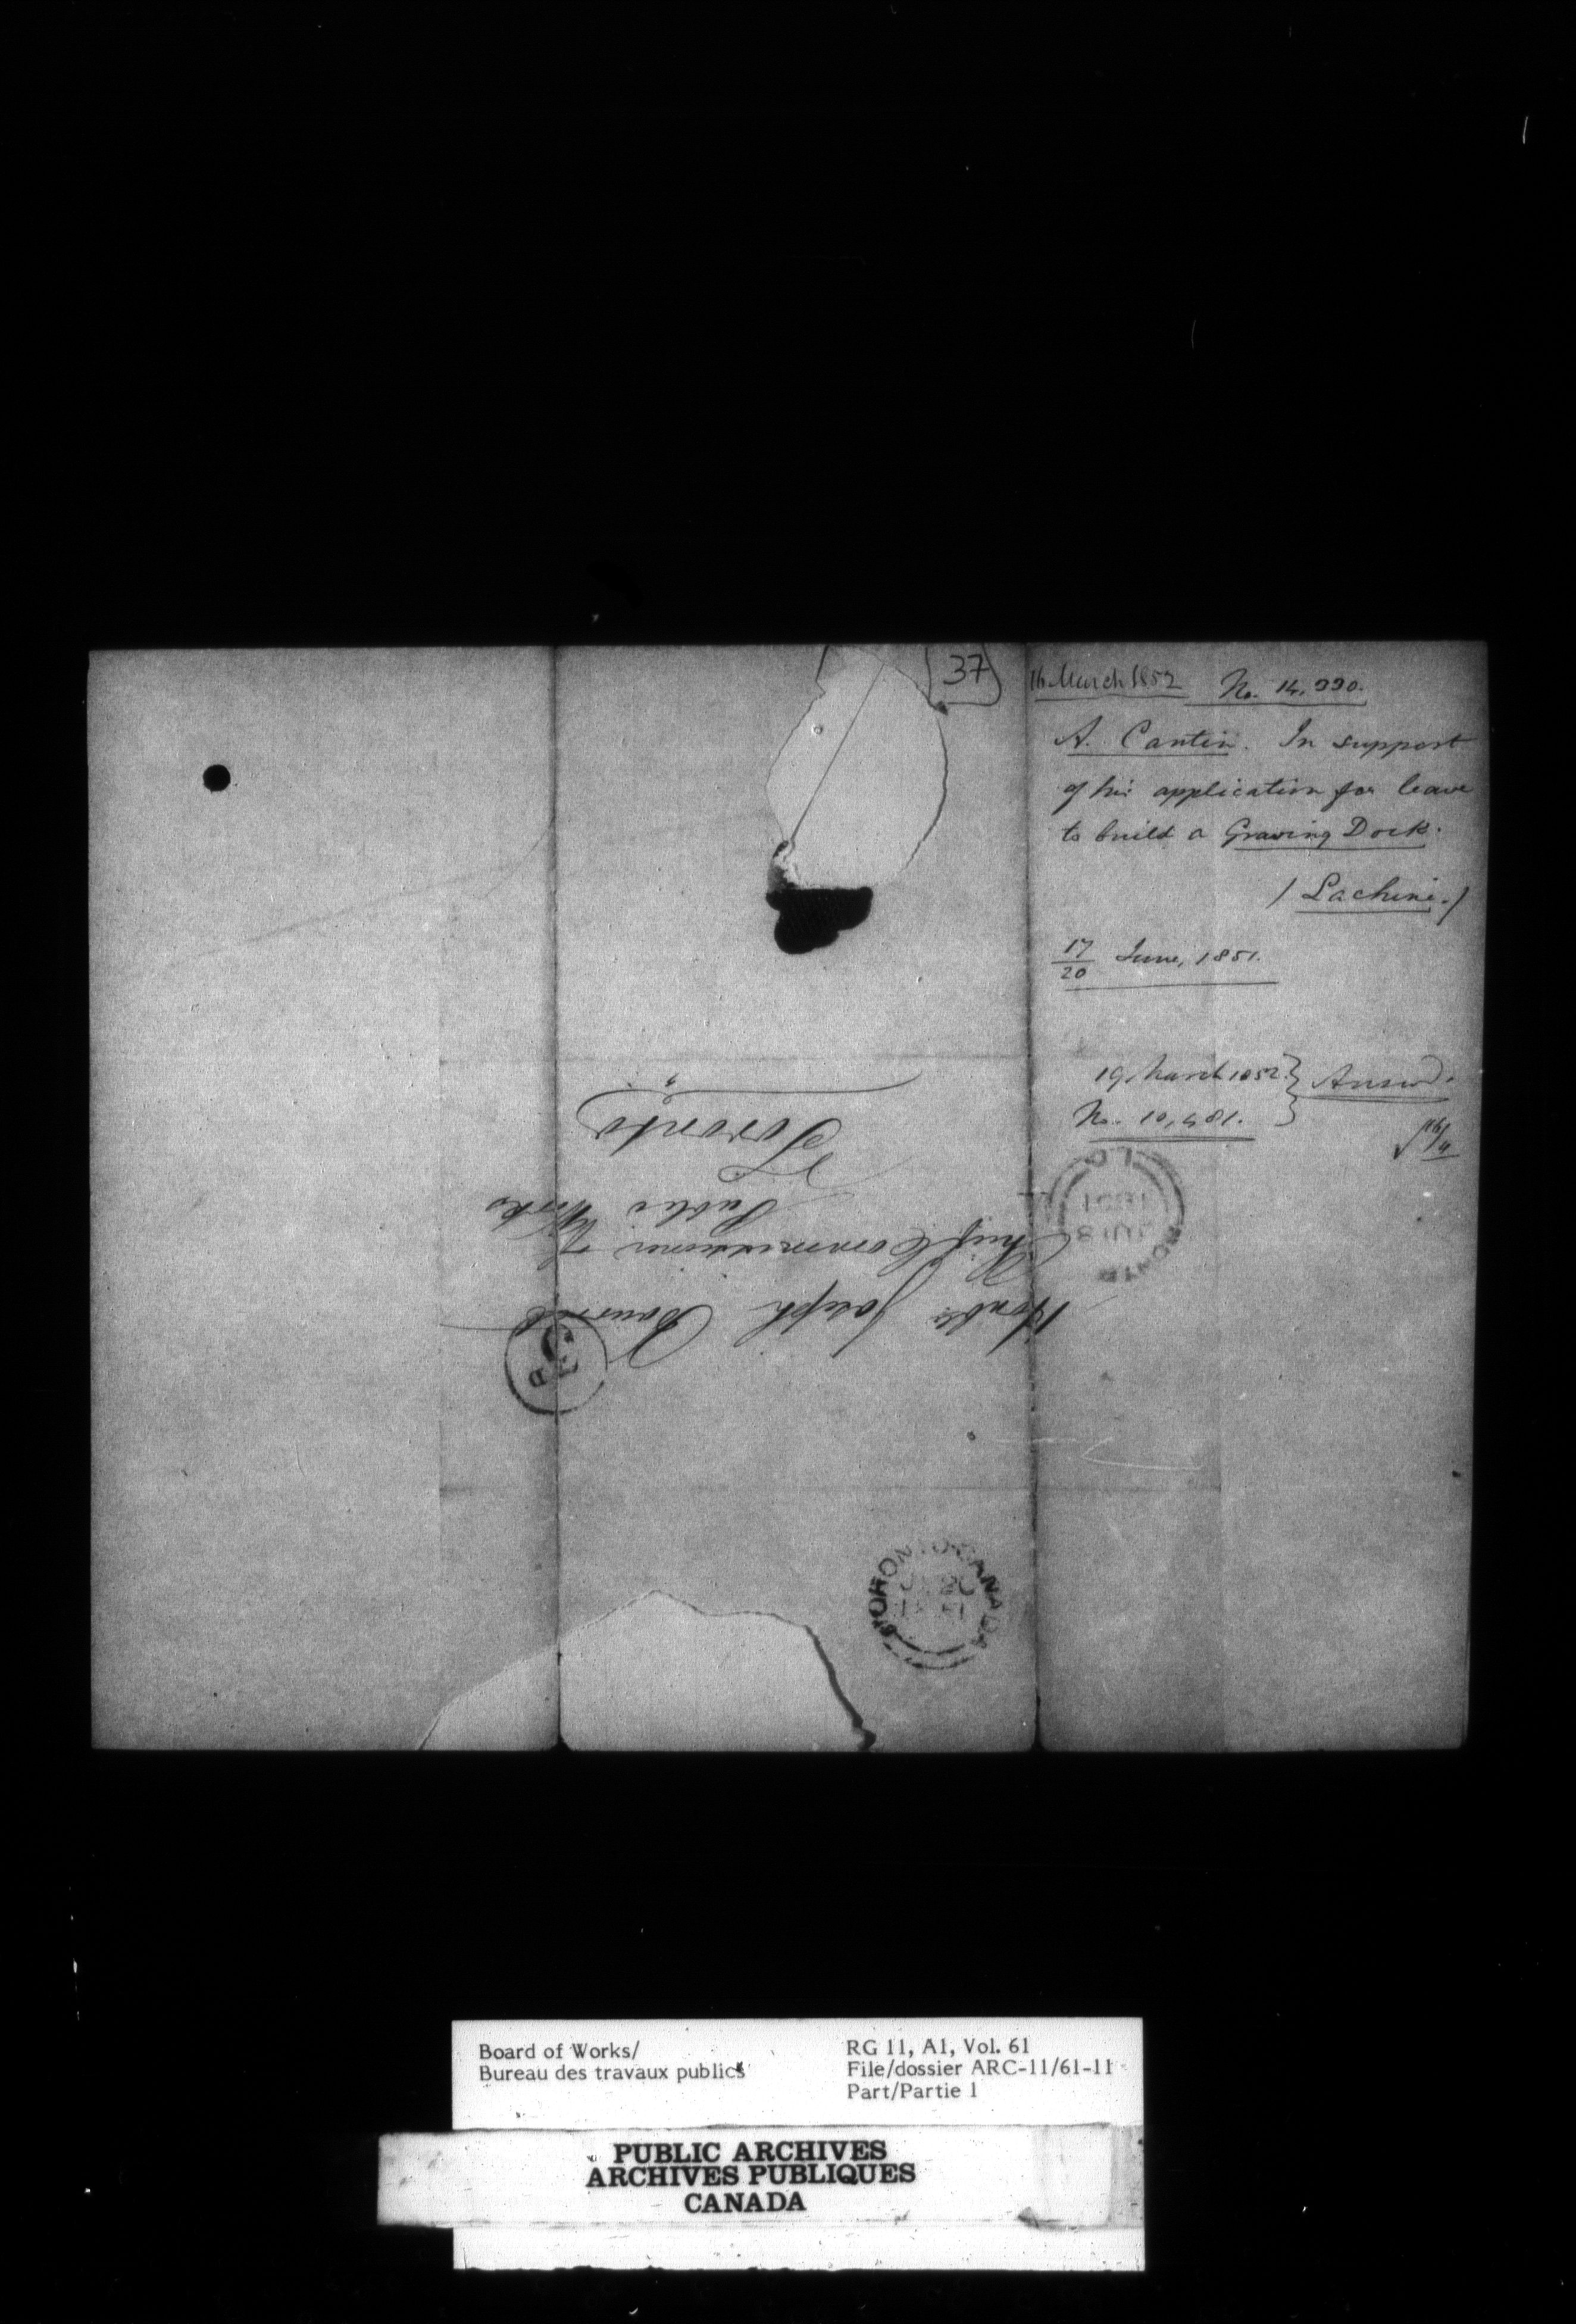 37
16 March 1852 No. 14,990.
A. Cantin. In support
of his application for leave
to build a Graving Dock.
/ Lachine. /
17/20 June, 1851.
19 March 1852 } Answd.
No. 10,481.
Honble Joseph Bourret
Chief Commissioner
Public Works
Toronto
MONTR
1851
TORONTO CANADA
Board of Works/
Bureau des travaux publics
RG 11, A1, Vol. 61
File/dossier ARC-11/61-11
Part/Partie 1
PUBLIC ARCHIVES
ARCHIVES PUBLIQUES
CANADA